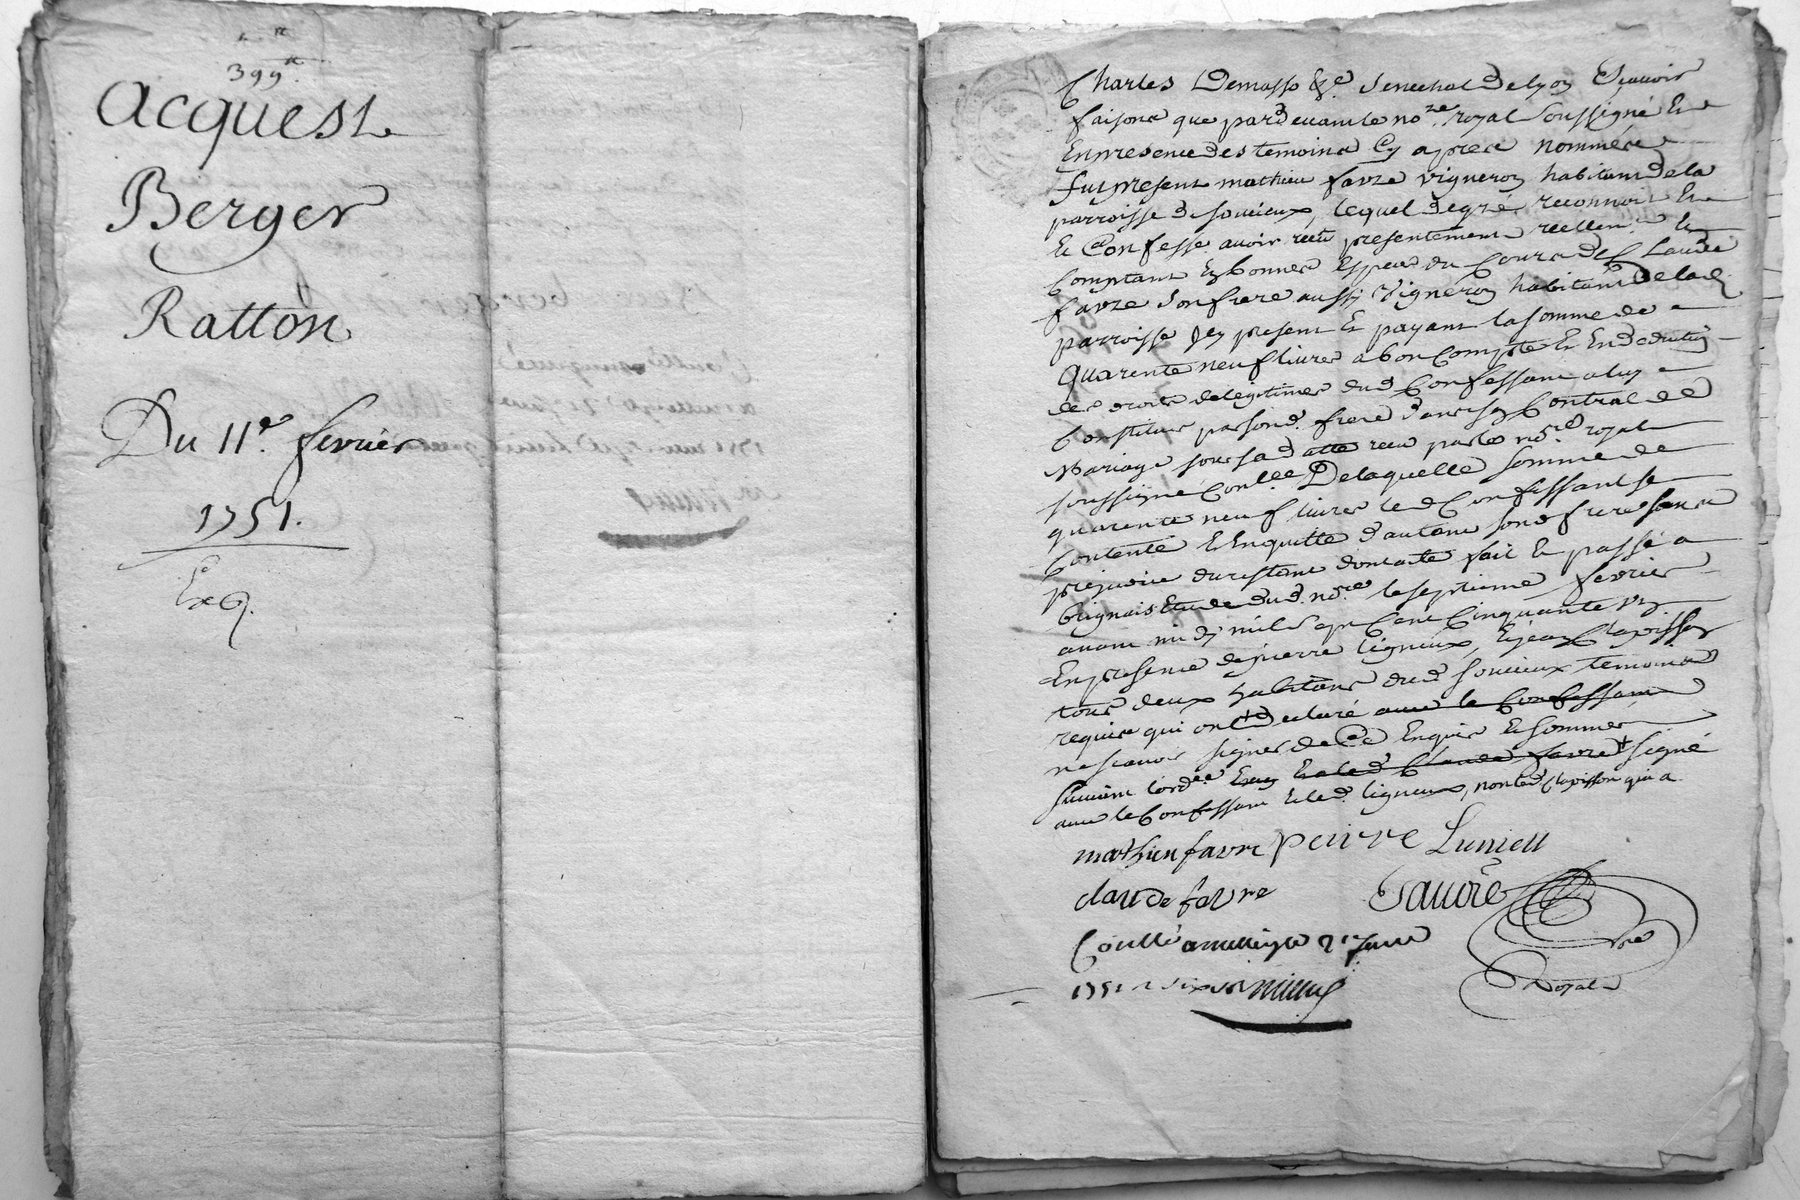 399
acquest
Berger
Ratton
Du 11e. fevrier
1751.
Exp.
Charles Demasso &c. Senechal de lyon Sçavoir
faisons que pardevant le nore. royal soussigné Et
En presence des temoins Cy apres nommés
fut present mathieu favre vigneron habitant de la
parroisse de soucieux, lequel degré reconnoit Et
Et Confesse avoir reçu presentement reellemt. Et
Comptant En bonnes Especes du Cours de Claude
favre son frere aussy vigneron habitant de lad.
parroisse Icy present Et payant la somme de
quarente neuf livres a bon Compte Et En deduction
des droits de legitimes dud. Confessant a luy
Constitués par sond. frere dans son Contrat de
Mariage sous sa datte reçu par le nore. royal
soussigné Conllé. De laquelle somme de
quarente neuf livres led. Confessant se
Contente Et En quitte d'autant sond. frere sans
prejudice du restant dont acte fait Et passé a
brignais Etude dud. nore. le septieme fevrier
avant midy mil sept Cent Cinquante un
En presence de pierre ligneux, Et jean Clapisson
tous deux habitans dud. soucieux temoins
requis qui ont declaré avec le Confessant
ne scavoir signer de Ce Enquis Et sommés
suivant l'ordce. Et led. Claude favre signé
avec le Confessant Et led. ligneux, non led. Clapisson qui a
mathieu favre peirre Lunieu
claude favre
nore
Royal
Conllé a 21 fevrier
1751 r six sols